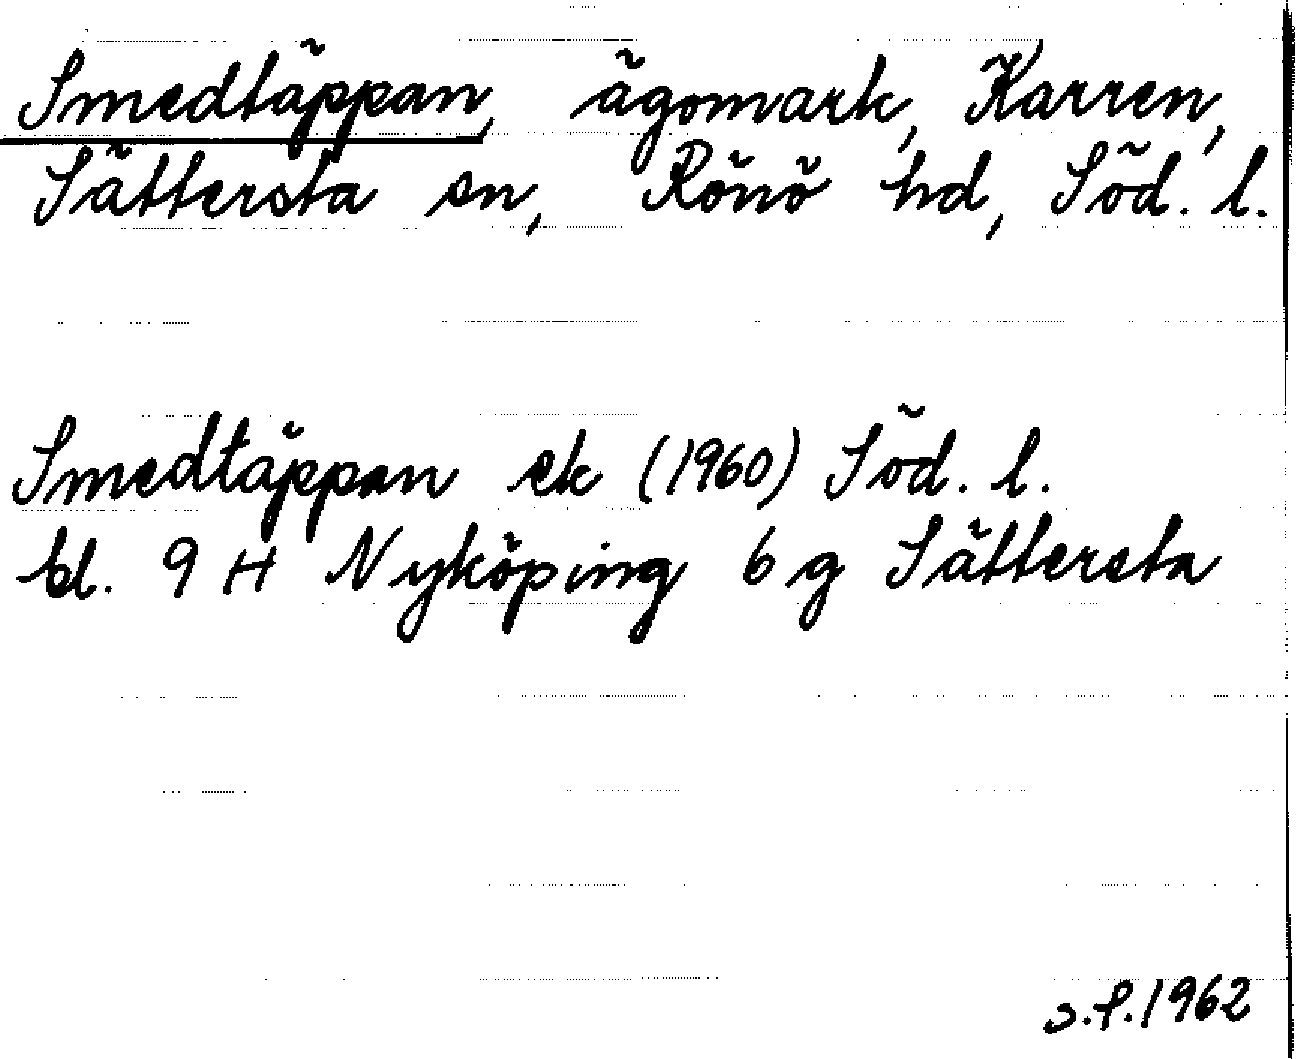 Smedtäppan, ägomark, Kärren,
Sättersta sn, Rönö hd, Söd. l.
Smedtäppan ek (1960) Söd. l.
bl. 9 H Nyköping 6 g Sättersta
S.P. 1962